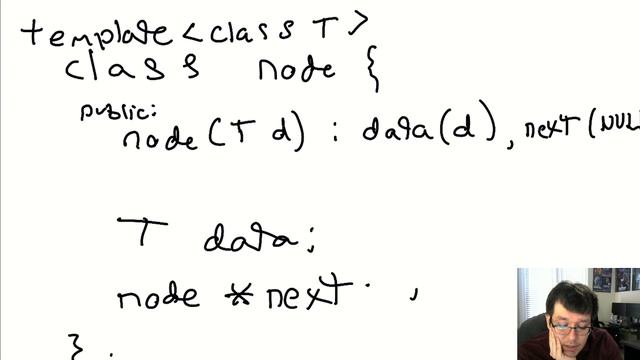 template<class T>
class node {
public:
node(T d) : data(d), next(NULL
T data;
node *next ;
};